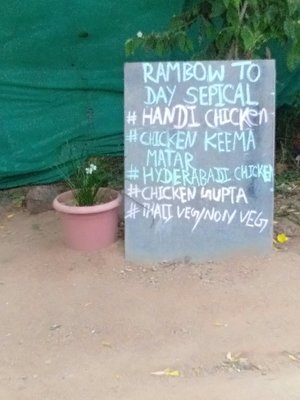 RAMBOW TO
DAY SEPICAL
# HANDI CHICKEN
# CHICKEN KEEMA
MATAR
# HYDERABADI CHICKEN
# CHICKEN GUPTA
# THALI VEG/NON VEG